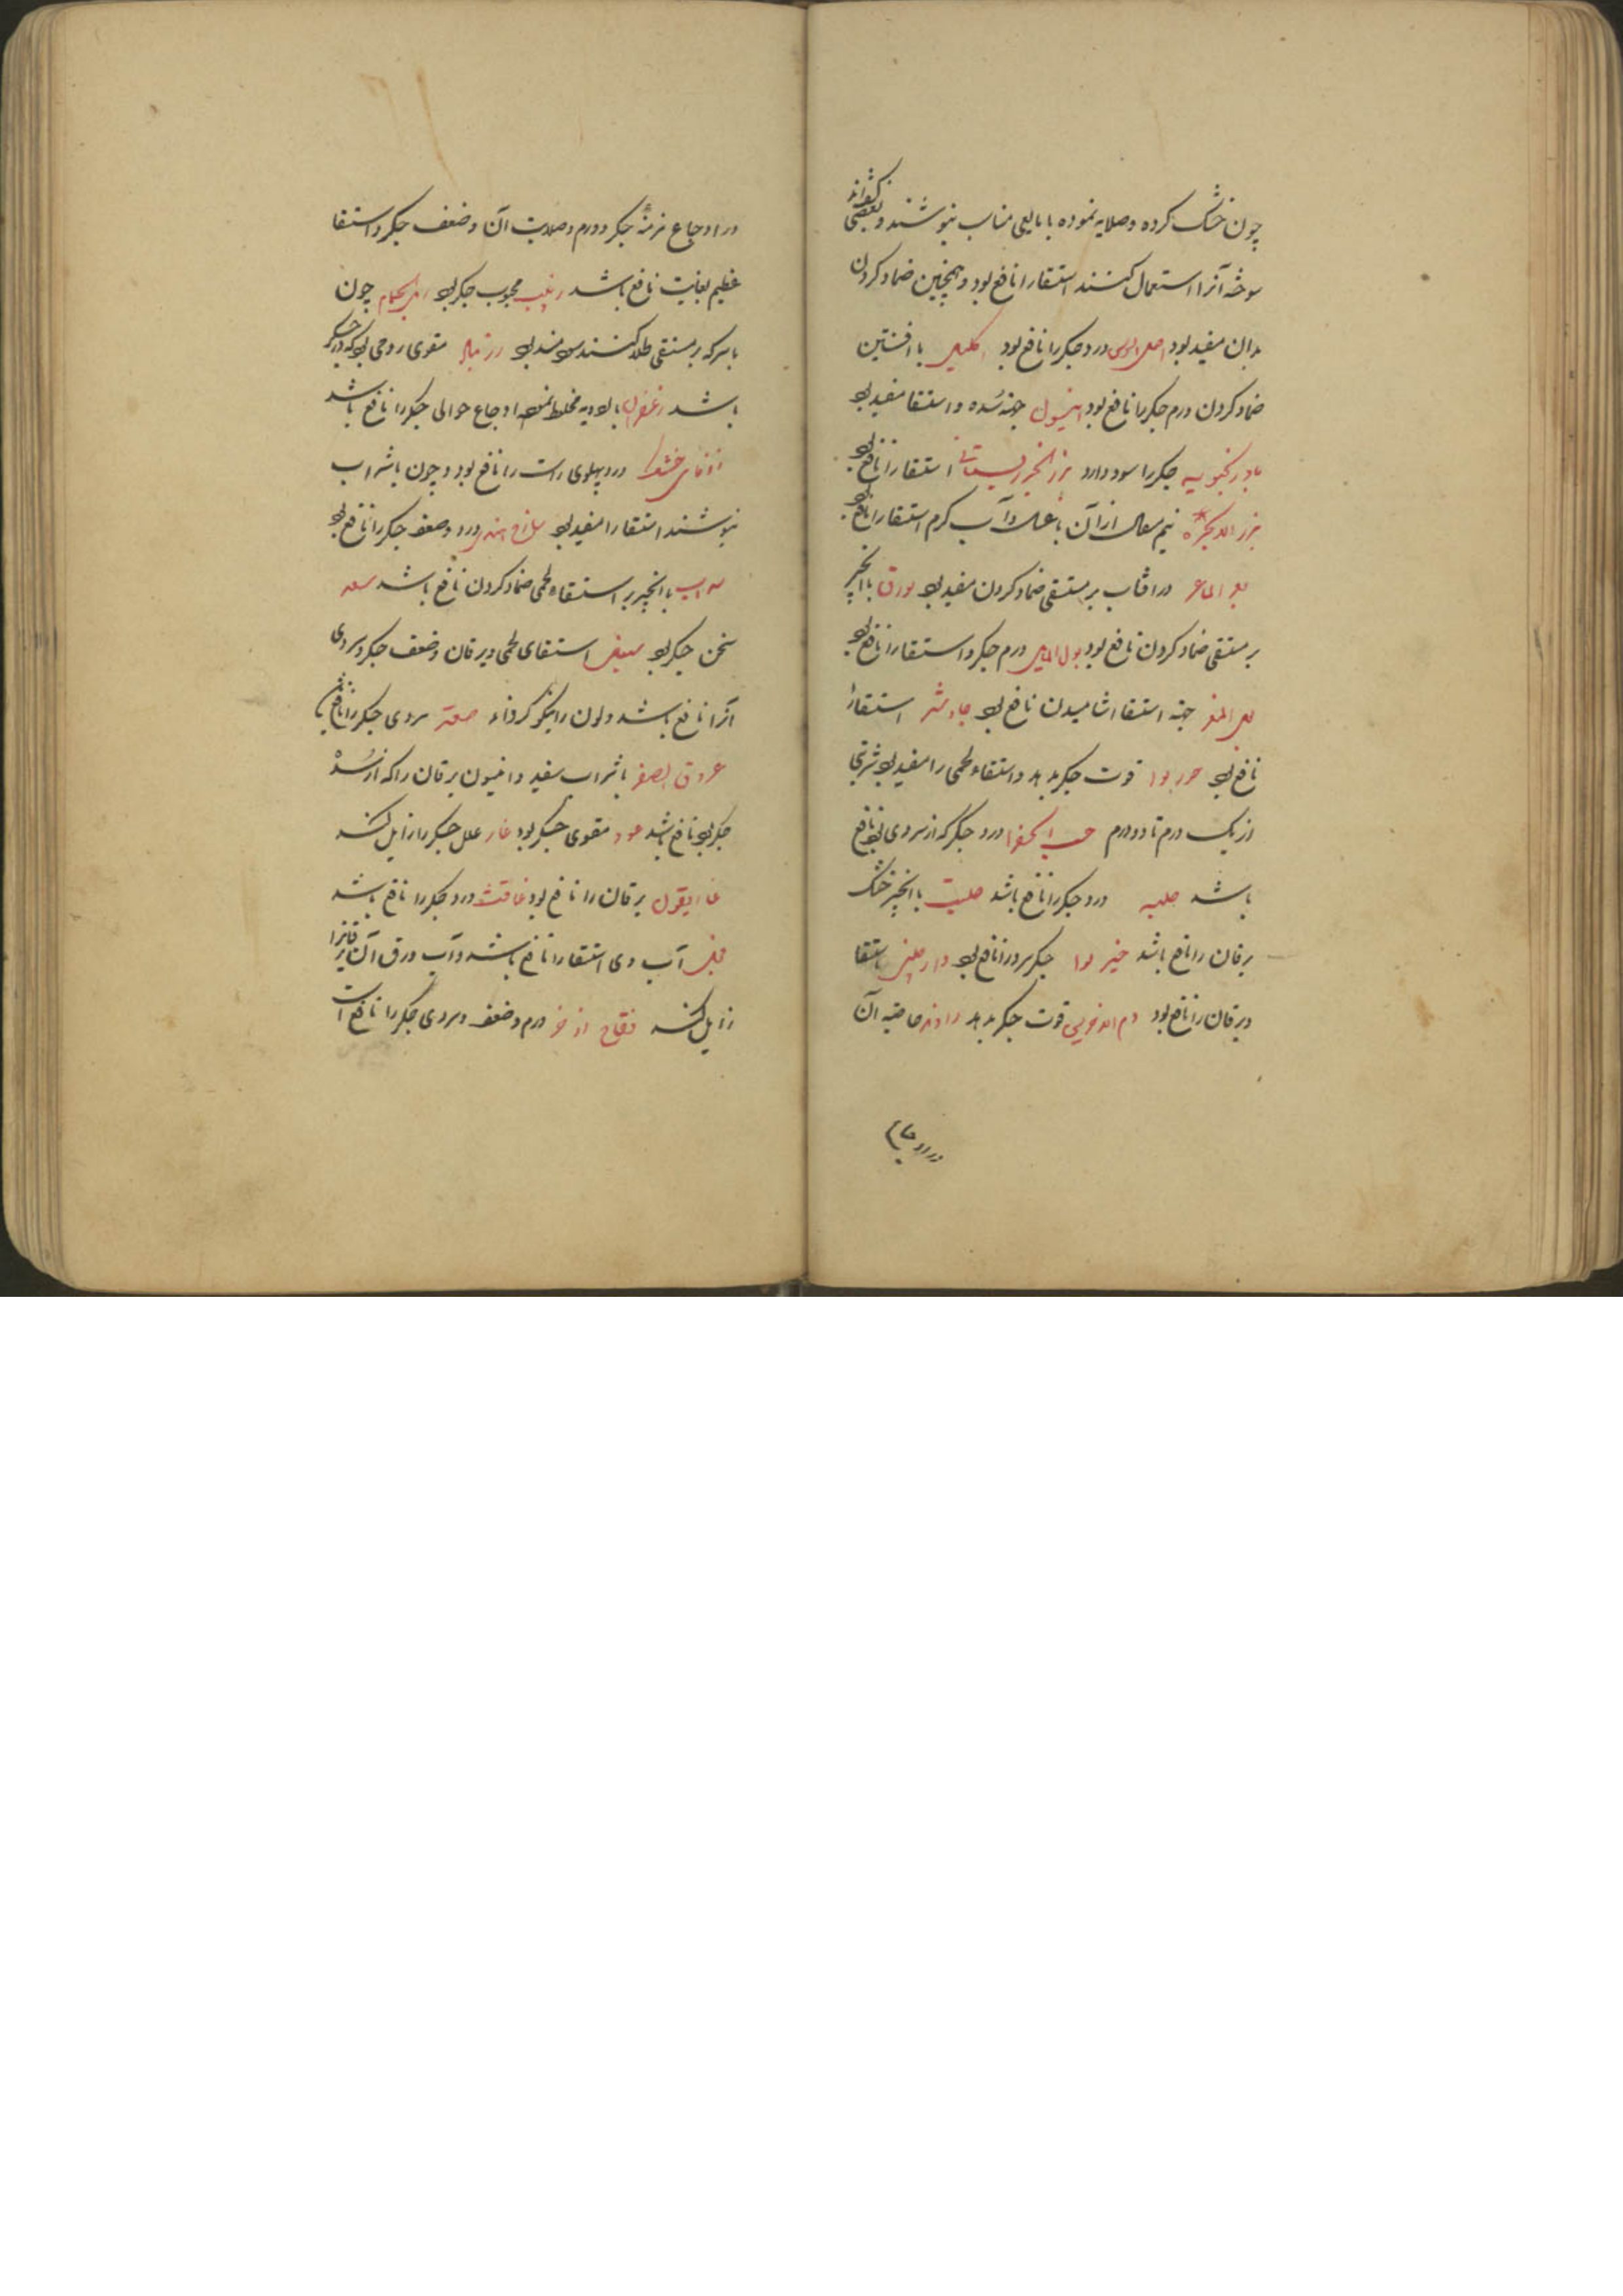 چون خشک کرده و صلایه نموده با مایعی مناسب بنوشند و بعضی گفته‌اند
سوخته آنرا استعمال کنند استسقا را نافع بود و همچنین ضماد کردن
بدان مفید بود اصل السوس درد جکر را نافع بود اکلیل با افسنتین
ضماد کردن ورم جکر را نافع بود انیسون جهة سُده و استسقا مفید بود
بادرنجبویه جکر را سود دارد بزر الجزر بستانی استسقا را نافع بود
بزر الانجره نیم مثقال از آن با عسل و آب کرم استسقا را نافع بود
بعر الماعز در آفتاب بر مستسقی ضماد کردن مفید بود بورق با انجیر
بر مستسقی ضماد کردن نافع بود بول الابل ورم جکر و استسقا را نافع بود
بول المعز جهة استسقا آشامیدن نافع بود جاوشیر استسقا را
نافع بود جوزبوا قوت جکر بدهد و استسقاء لحمی را مفید بود شربتی
از یک درم تا دو درم حب الخضرا درد جکر که از سردی بود نافع
باشد حلبه درد جکر را نافع باشد حلتیت با انجیر خشک
یرقان را نافع باشد خیر بوا جکر سرد را نافع بود دارچینی استسقا
و یرقان را نافع بود دم الاخوین قوت جکر بدهد راوند خاصیه آن
در اوجاع
در اوجاع مزمنهٔ جکر و ورم و صلابت آن و ضعف جکر و استسقا
عظیم بغایت نافع باشد زبیب محبوب جکر بود زبل الحمام چون
با سرکه بر مستسقی طلا کنند سودمند بود زرنباد مقوی روحی بود که در جکر
باشد زعفران با ادویه مخلط نموده اوجاع حوالی جکر را نافع باشد
زوفای خشک درد پهلوی راست را نافع بود و چون با شراب
بنوشند استسقا را مفید بود ساذج هندی درد و ضعف جکر را نافع بود
سداب با انجیر بر استسقاء لحمی ضماد کردن نافع باشد سعد
مسخن جکر بود سنبل استسقای لحمی و یرقان و ضعف جکر و سردی
آنرا نافع باشد و لون را نیکو کرداند صعتر سردی جکر را نافع باشد
عروق الصفر با شراب سفید و انیسون یرقان را که از سُده
جکر بود نافع باشد عود مقوی جکر بود غار علل جکر را زایل کند
غاریقون یرقان را نافع بود غافث درد جکر را نافع باشد
فجل آب وی استسقا را نافع باشد و آب ورق آن یرقانرا
زایل کند فقاح اذخر ورم و ضعف و سردی جکر را نافع است